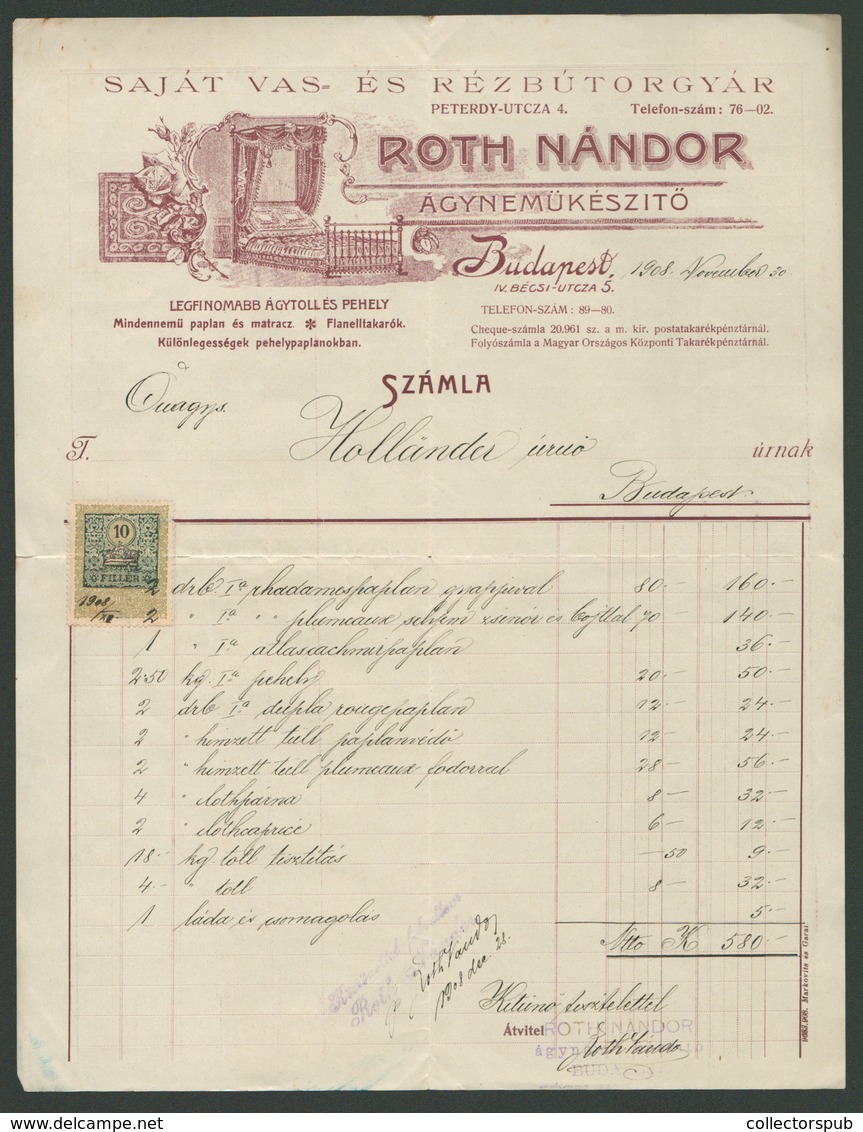 SAJÁT VAS- ÉS RÉZBÚTORGYÁR
PETERDY-UTCZA 4. Telefon-szám: 76—02.
ROTH NÁNDOR
ÁGYNEMÜKÉSZITŐ
Budapest, 1908. November 30
IV. BÉCSI-UTCZA 5.
LEGFINOMABB ÁGYTOLL ÉS PEHELY
Mindennemü paplan és matracz * Flanelltakarók.
Különlegességek pehelypaplanokban.
TELEFON-SZÁM: 89—80.
Cheque-számla 20.961 sz. a m. kir. postatakarékpénztárnál.
Folyószámla a Magyar Országos Központi Takarékpénztárnál.
SZÁMLA
T. Holländer úrnak
Budapest.
10
FILLÉR
1908
2 drb. Iª rhadamespaplan 80.— 160.—
2 " Iª " " plumeaux selyem zsinór és bojttal 70— 140.—
1 " Iª atlascachmirpaplan 36.—
2·50 kg. Iª pehely 20.— 50.—
2 drb Iª dupla rougepaplan 12.— 24.—
2 " himzett tüll paplanvédő 12— 24.—
2 " himzett tüll plumeaux fodorral 28— 56.—
4 " clothpárna 8— 32.—
2 " clothcaprice 6— 12.—
18.— kg. toll tisztitás —50 9.—
4.— " toll 8— 32.—
1 láda és csomagolás 5.—
Ntto K 580.—
Roth Nándor
1908 dec. 28.
Kitünő tisztelettel
Átvitel ROTH NÁNDOR
Roth Nándor
BUDA
9083.906. Markovits és Garai
collectorspub